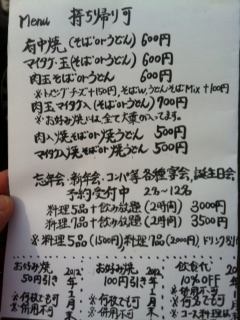 Menu 持ち帰り可
府中焼(そばorうどん) 600円
マイタケ玉(そばorうどん) 600円
肉玉そばorうどん 600円
※トッピングチーズ+150円,そばW,うどんそばMix +100円
肉玉マイタケ入(そばorうどん) 700円
※お好み焼には全て大葉が入ってます。
肉入焼そばor焼うどん 500円
マイタケ入焼そばor焼うどん 500円
忘年会、新年会、コンパ等各種宴会、誕生日会
予約受付中 2名~12名
料理5品+飲み放題(2時間) 3000円
料理7品+飲み放題(2時間) 3500円
※料理5品(1500円)料理7品(2000円)ドリンク別
お好み焼 2012
50円引き 年
※何枚でも可
※併用不可
お好み焼 2012
100円引き 年
※何枚でも可
※併用不可
飲食代 2
10%OFF
※何名でも可
※併用不可
※コース料理